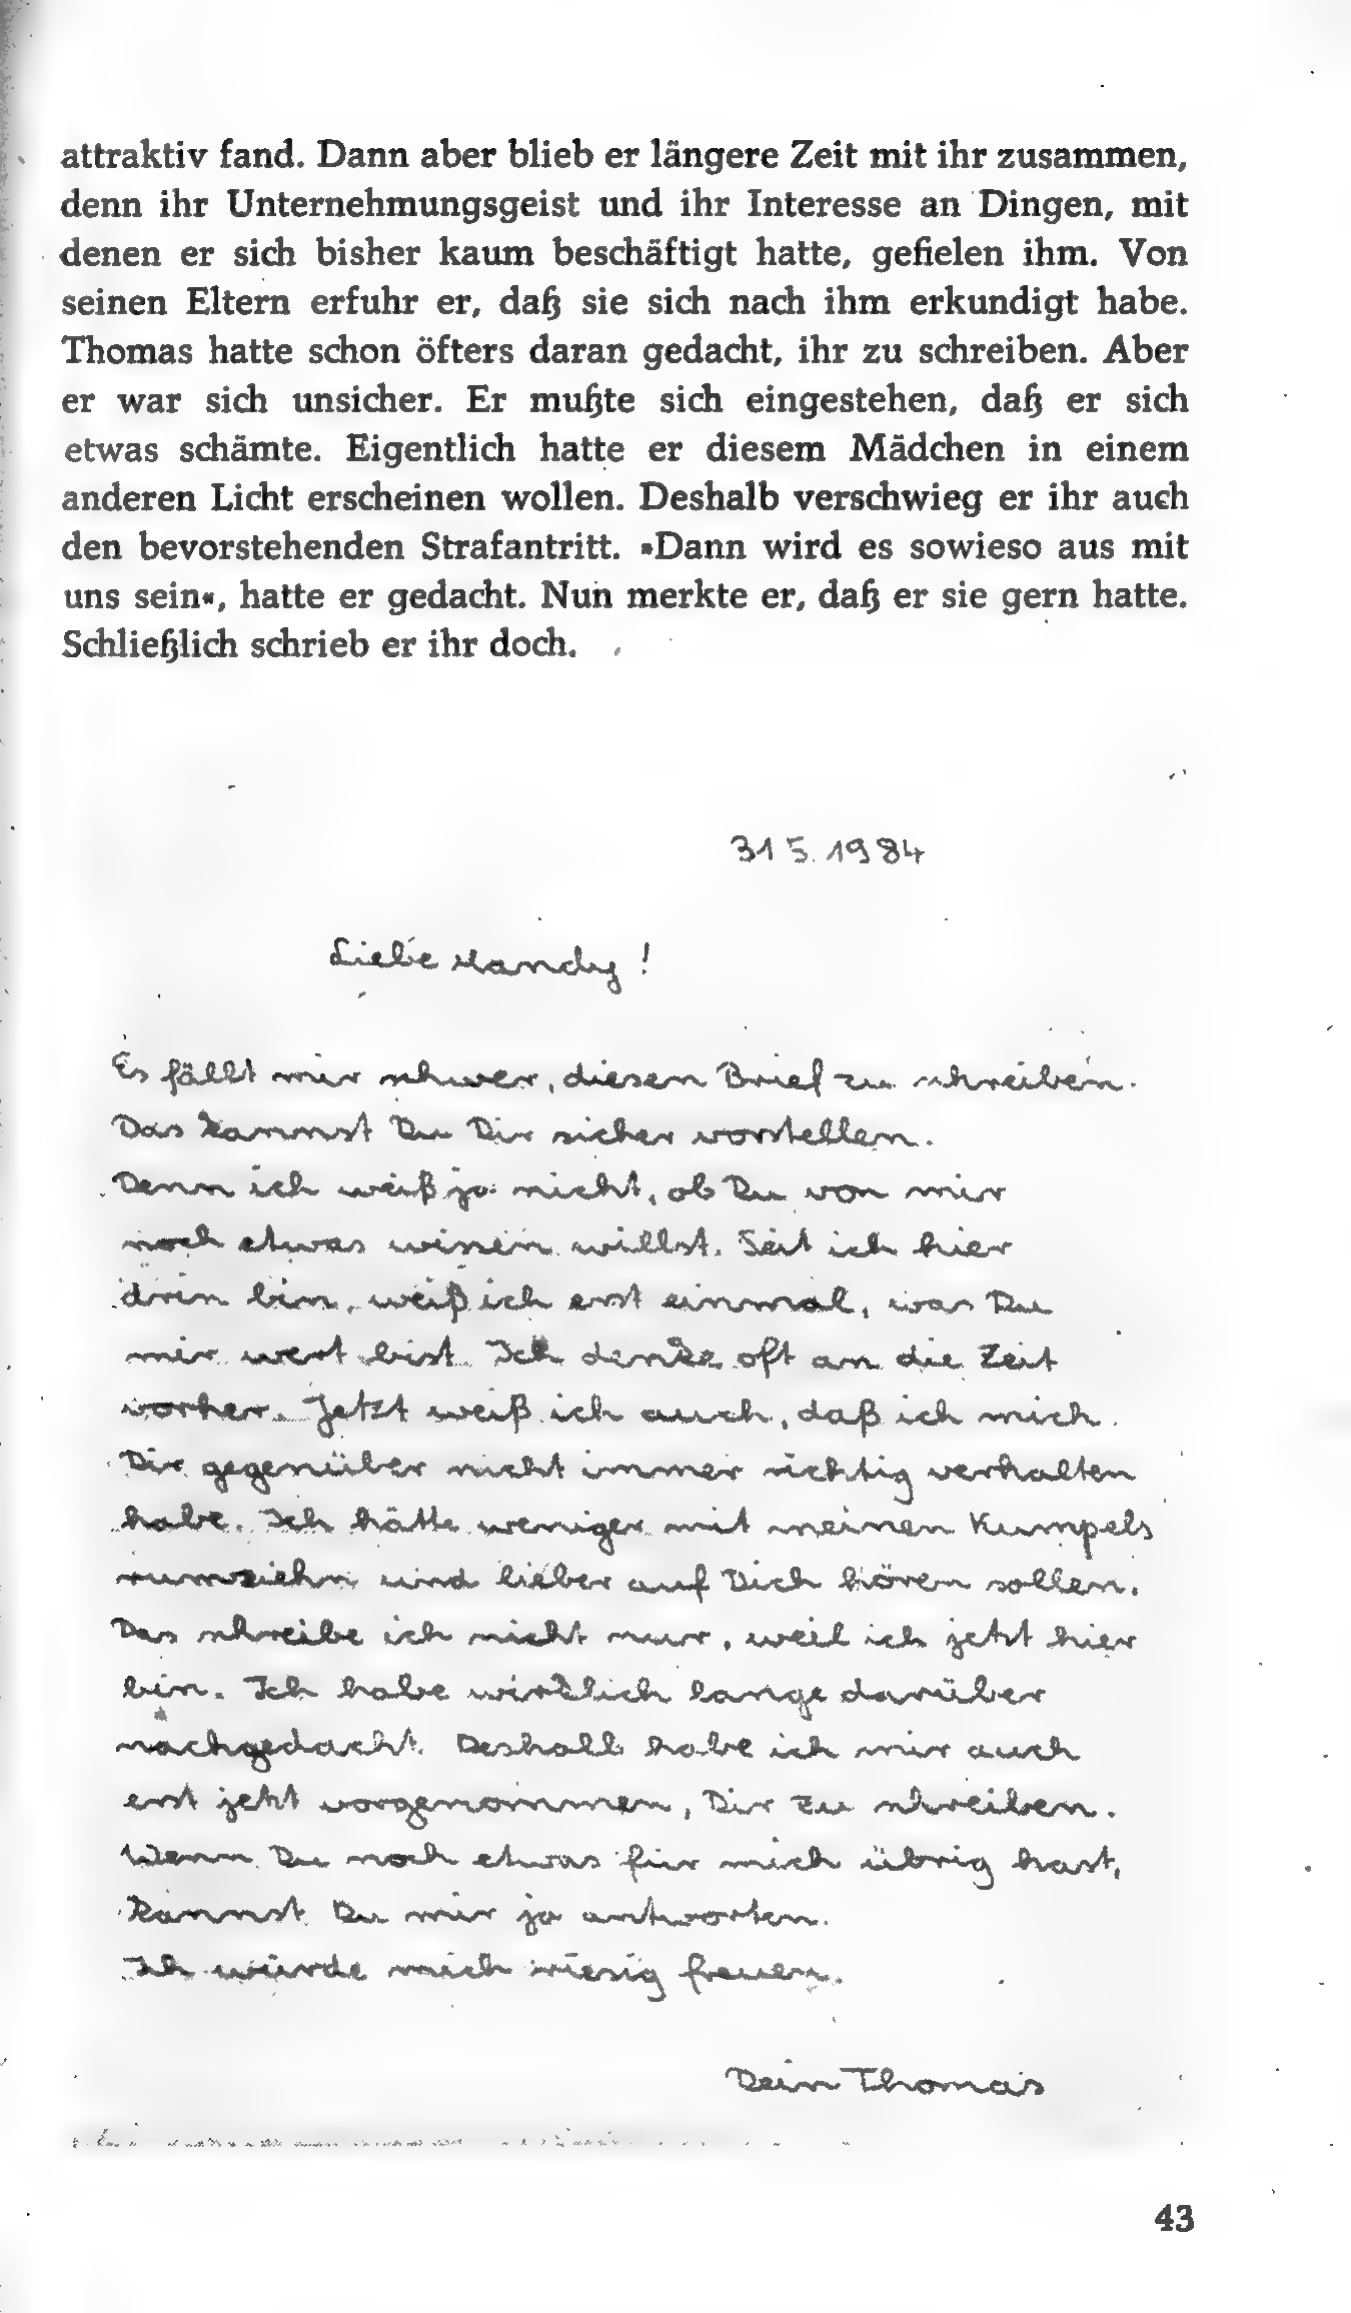 attraktiv fand. Dann aber blieb er längere Zeit mit ihr zusammen,
denn ihr Unternehmungsgeist und ihr Interesse an Dingen, mit
denen er sich bisher kaum beschäftigt hatte, gefielen ihm. Von
seinen Eltern erfuhr er, daß sie sich nach ihm erkundigt habe.
Thomas hatte schon öfters daran gedacht, ihr zu schreiben. Aber
er war sich unsicher. Er mußte sich eingestehen, daß er sich
etwas schämte. Eigentlich hatte er diesem Mädchen in einem
anderen Licht erscheinen wollen. Deshalb verschwieg er ihr auch
den bevorstehenden Strafantritt. »Dann wird es sowieso aus mit
uns sein«, hatte er gedacht. Nun merkte er, daß er sie gern hatte.
Schließlich schrieb er ihr doch.
31 5. 1984
Liebe Mandy!
Es fällt mir schwer, diesen Brief zu schreiben.
Das kannst Du Dir sicher vorstellen.
Denn ich weiß ja nicht, ob Du von mir
noch etwas wissen willst. Seit ich hier
drin bin, weiß ich erst einmal, was Du
mir wert bist. Ich denke oft an die Zeit
vorher. Jetzt weiß ich auch, daß ich mich
Dir gegenüber nicht immer richtig verhalten
habe. Ich hätte weniger mit meinen Kumpels
rumziehn und lieber auf Dich hören sollen.
Das schreibe ich nicht nur, weil ich jetzt hier
bin. Ich habe wirklich lange darüber
nachgedacht. Deshalb habe ich mir auch
erst jetzt vorgenommen, Dir zu schreiben.
Wenn Du noch etwas für mich übrig hast,
kannst Du mir ja antworten.
Ich würde mich riesig freuen.
Dein Thomas
43